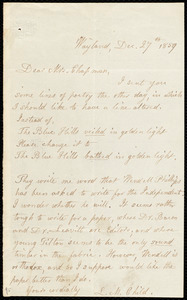 Wayland, Dec. 27th 1859
Dear Mrs. Chapman,
I sent you
some lines of poetry the other day, in which
I should like to have a line altered.
Instead of,
The Blue Hills veiled in golden light
Please change it to
The Blue Hills bathed in golden light.
They write me word that Wendell Phillips
has been asked to write for the Independent.
I wonder whether he will. It seems rather
tough to write for a paper, where Drs. Bacon
and are Editors, and when
young Tilton seems to be the only sound
timber in the fabric. However, Wendell
is orthodox, and so I suppose would like the
paper better than I do.
Yours cordially
L. M. Child.